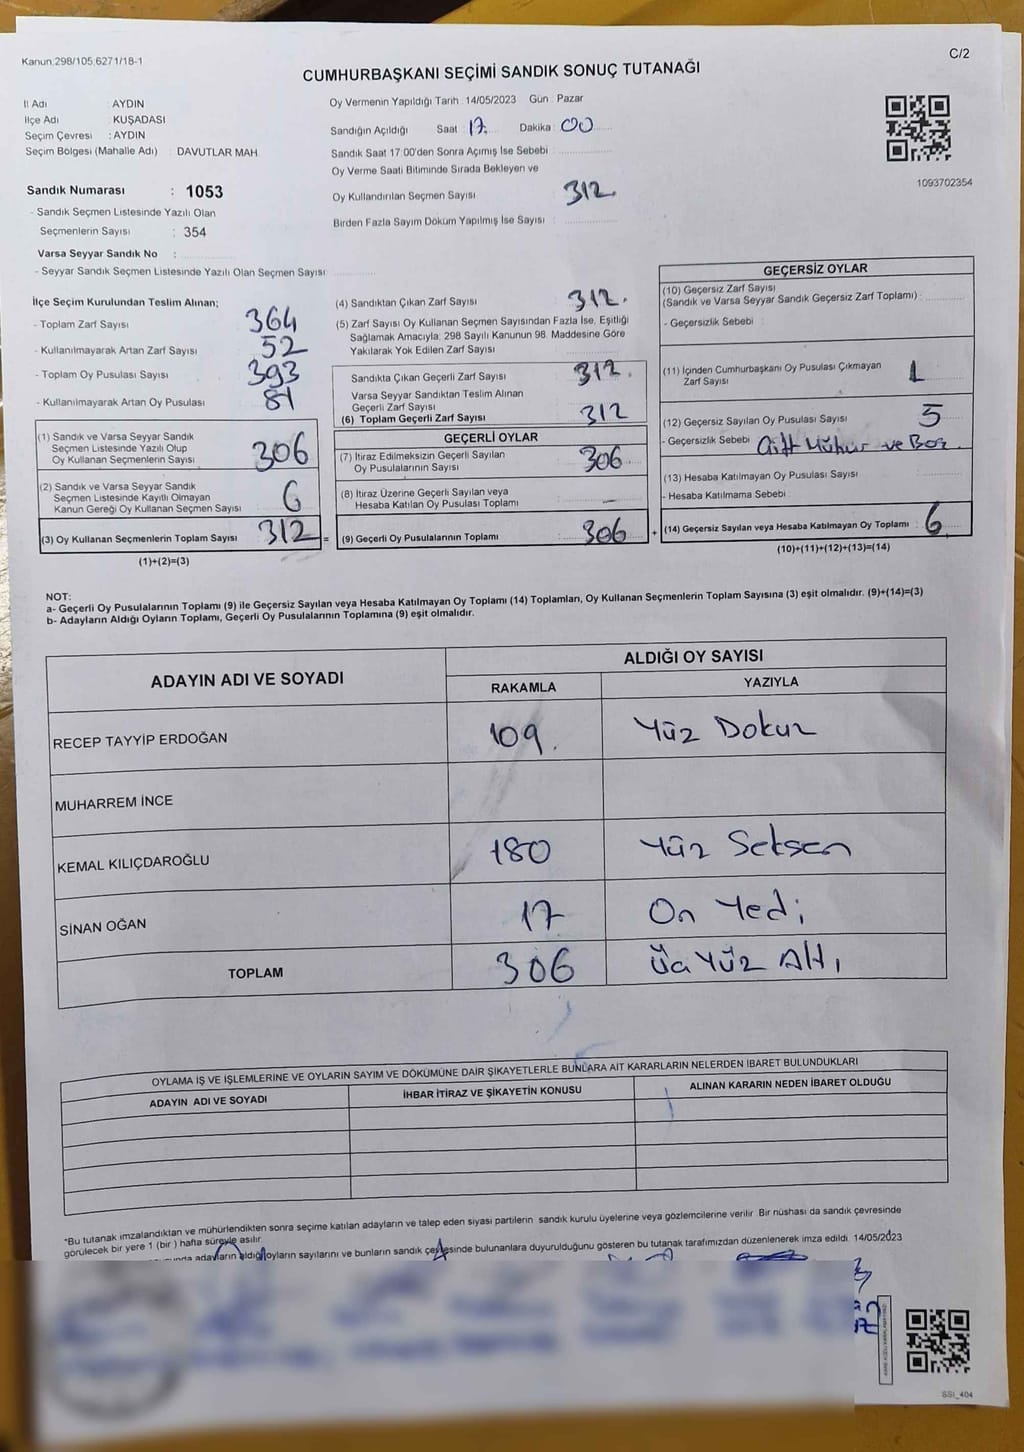 Kanun.298/105,6271/18-1
C/2
CUMHURBAŞKANI SEÇİMİ SANDIK SONUÇ TUTANAĞI
İl Adı : AYDIN
İlçe Adı : KUŞADASI
Seçim Çevresi : AYDIN
Seçim Bölgesi (Mahalle Adı) : DAVUTLAR MAH
Sandık Numarası : 1053
- Sandık Seçmen Listesinde Yazılı Olan
Seçmenlerin Sayısı : 354
Varsa Seyyar Sandık No :
- Seyyar Sandık Seçmen Listesinde Yazılı Olan Seçmen Sayısı
Oy Vermenin Yapıldığı Tarih : 14/05/2023 Gün : Pazar
Sandığın Açıldığı Saat : 17 Dakika : 00
Sandık Saat 17:00'den Sonra Açımış İse Sebebi :
Oy Verme Saati Bitiminde Sırada Bekleyen ve
Oy Kullandırılan Seçmen Sayısı 312
Birden Fazla Sayım Döküm Yapılmış İse Sayısı :
1093702354
İlçe Seçim Kurulundan Teslim Alınan;
- Toplam Zarf Sayısı 364
- Kullanılmayarak Artan Zarf Sayısı 52
- Toplam Oy Pusulası Sayısı 393
- Kullanılmayarak Artan Oy Pusulası 81
(1) Sandık ve Varsa Seyyar Sandık
Seçmen Listesinde Yazılı Olup
Oy Kullanan Seçmenlerin Sayısı 306
(2) Sandık ve Varsa Seyyar Sandık
Seçmen Listesinde Kayıtlı Olmayan
Kanun Gereği Oy Kullanan Seçmen Sayısı 6
(3) Oy Kullanan Seçmenlerin Toplam Sayısı 312 =
(1)+(2)=(3)
(4) Sandıktan Çıkan Zarf Sayısı 312.
(5) Zarf Sayısı Oy Kullanan Seçmen Sayısından Fazla İse, Eşitliği
Sağlamak Amacıyla, 298 Sayılı Kanunun 98. Maddesine Göre
Yakılarak Yok Edilen Zarf Sayısı
Sandıkta Çıkan Geçerli Zarf Sayısı 312.
Varsa Seyyar Sandıktan Teslim Alınan
Geçerli Zarf Sayısı
(6) Toplam Geçerli Zarf Sayısı 312
GEÇERLİ OYLAR
(7) İtiraz Edilmeksizin Geçerli Sayılan
Oy Pusulalarının Sayısı 306
(8) İtiraz Üzerine Geçerli Sayılan veya
Hesaba Katılan Oy Pusulası Toplamı
(9) Geçerli Oy Pusulalarının Toplamı 306 +
GEÇERSİZ OYLAR
(10) Geçersiz Zarf Sayısı
(Sandık ve Varsa Seyyar Sandık Geçersiz Zarf Toplamı) :
- Geçersizlik Sebebi :
(11) İçinden Cumhurbaşkanı Oy Pusulası Çıkmayan
Zarf Sayısı 1
(12) Geçersiz Sayılan Oy Pusulası Sayısı 5
- Geçersizlik Sebebi Çift Mühür ve Boş
(13) Hesaba Katılmayan Oy Pusulası Sayısı
- Hesaba Katılmama Sebebi :
(14) Geçersiz Sayılan veya Hesaba Katılmayan Oy Toplamı 6
(10)+(11)+(12)+(13)=(14)
NOT:
a- Geçerli Oy Pusulalarının Toplamı (9) ile Geçersiz Sayılan veya Hesaba Katılmayan Oy Toplamı (14) Toplamları, Oy Kullanan Seçmenlerin Toplam Sayısına (3) eşit olmalıdır. (9)+(14)=(3)
b- Adayların Aldığı Oyların Toplamı, Geçerli Oy Pusulalarının Toplamına (9) eşit olmalıdır.
ADAYIN ADI VE SOYADI
ALDIĞI OY SAYISI
RAKAMLA YAZIYLA
RECEP TAYYİP ERDOĞAN 109. Yüz Dokuz
MUHARREM İNCE
KEMAL KILIÇDAROĞLU 180 Yüz Seksen
SİNAN OĞAN 17 On Yedi
TOPLAM 306 Üç Yüz Altı
OYLAMA İŞ VE İŞLEMLERİNE VE OYLARIN SAYIM VE DÖKÜMÜNE DAİR ŞİKAYETLERLE BUNLARA AİT KARARLARIN NELERDEN İBARET BULUNDUKLARI
ADAYIN ADI VE SOYADI İHBAR İTİRAZ VE ŞİKAYETİN KONUSU ALINAN KARARIN NEDEN İBARET OLDUĞU
*Bu tutanak imzalandıktan ve mühürlendikten sonra seçime katılan adayların ve talep eden siyasi partilerin sandık kurulu üyelerine veya gözlemcilerine verilir. Bir nüshası da sandık çevresinde
görülecek bir yere 1 (bir) hafta süreyle asılır.
adayların aldığı oyların sayılarını ve bunların sandık çevresinde bulunanlara duyurulduğunu gösteren bu tutanak tarafımızdan düzenlenerek imza edildi. 14/05/2023
SSİ_404